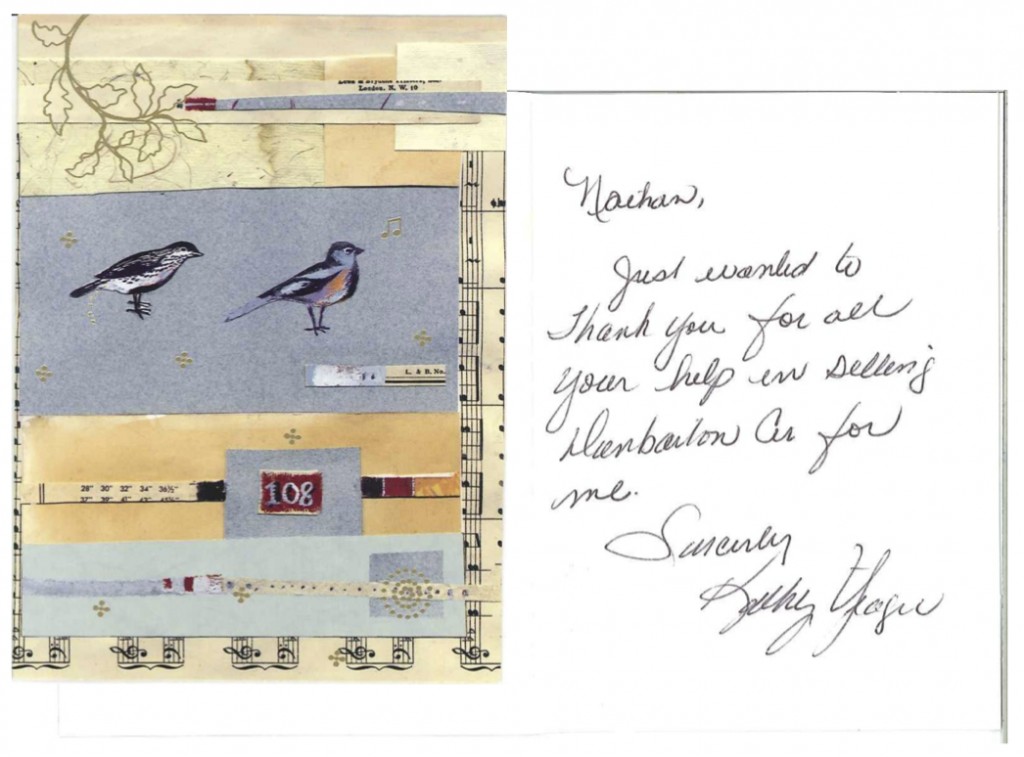 London, N. W. 10
L. & B. No.
28" 30" 32" 34" 36½"
108
Nathan,
Just wanted to
Thank you for all
your help in selling
Dunbarton Cir for
me.
Sincerely
Kathy Yeager